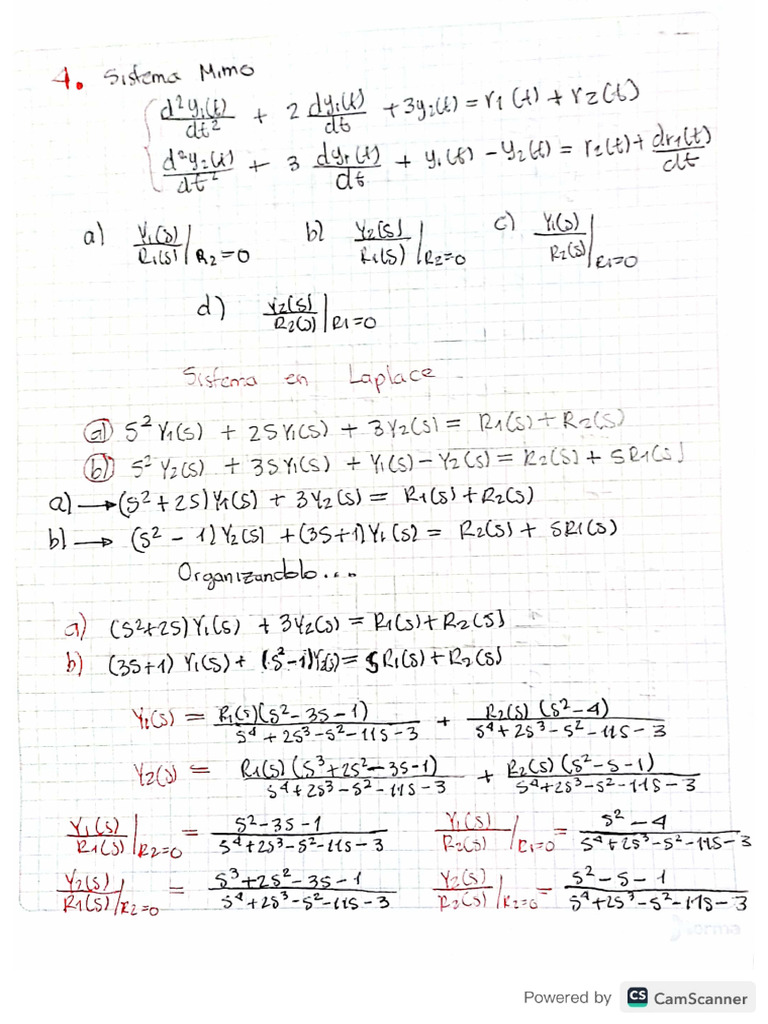 4. Sistema Mimo
d²y₁(t)/dt² + 2 dy₁(t)/dt + 3y₂(t) = r1(t) + r2(t)
d²y₂(t)/dt² + 3 dy₁(t)/dt + y₁(t) - y₂(t) = r2(t) + dr1(t)/dt
a) Y₁(s)/R₁(s) | R₂=0 b) Y₂(s)/R₁(s) | R₂=0 c) Y₁(s)/R₂(s) | R1=0
d) Y₂(s)/R₂(s) | R1=0
Sistema en Laplace
a) S²Y₁(s) + 2SY₁(s) + 3Y₂(s) = R₁(s) + R₂(s)
b) S²Y₂(s) + 3SY₁(s) + Y₁(s) - Y₂(s) = R₂(s) + SR₁(s)
a) → (S² + 2S)Y₁(s) + 3Y₂(s) = R₁(s) + R₂(s)
b) → (S² - 1)Y₂(s) + (3S+1)Y₁(s) = R₂(s) + SR1(s)
Organizandolo....
a) (S²+2S)Y₁(s) + 3Y₂(s) = R₁(s) + R₂(s)
b) (3S+1) Y₁(s) + (S²-1)Y₂(s) = SR₁(s) + R₂(s)
Y₁(s) = R₁(s)(S² - 3S - 1)/S⁴ + 2S³ - S² - 11S - 3 + R₂(s)(S² - 4)/S⁴ + 2S³ - S² - 11S - 3
Y₂(s) = R₁(s)(S³ + 2S² - 3S - 1)/S⁴ + 2S³ - S² - 11S - 3 + R₂(s)(S² - S - 1)/S⁴ + 2S³ - S² - 11S - 3
Y₁(s)/R₁(s) | R₂=0 = S² - 3S - 1/S⁴ + 2S³ - S² - 11S - 3 Y₁(s)/R₂(s) | R1=0 = S² - 4/S⁴ + 2S³ - S² - 11S - 3
Y₂(s)/R₁(s) | R₂=0 = S³ + 2S² - 3S - 1/S⁴ + 2S³ - S² - 11S - 3 Y₂(s)/R₂(s) | R₂=0 = S² - S - 1/S⁴ + 2S³ - S² - 11S - 3
norma
Powered by CS CamScanner